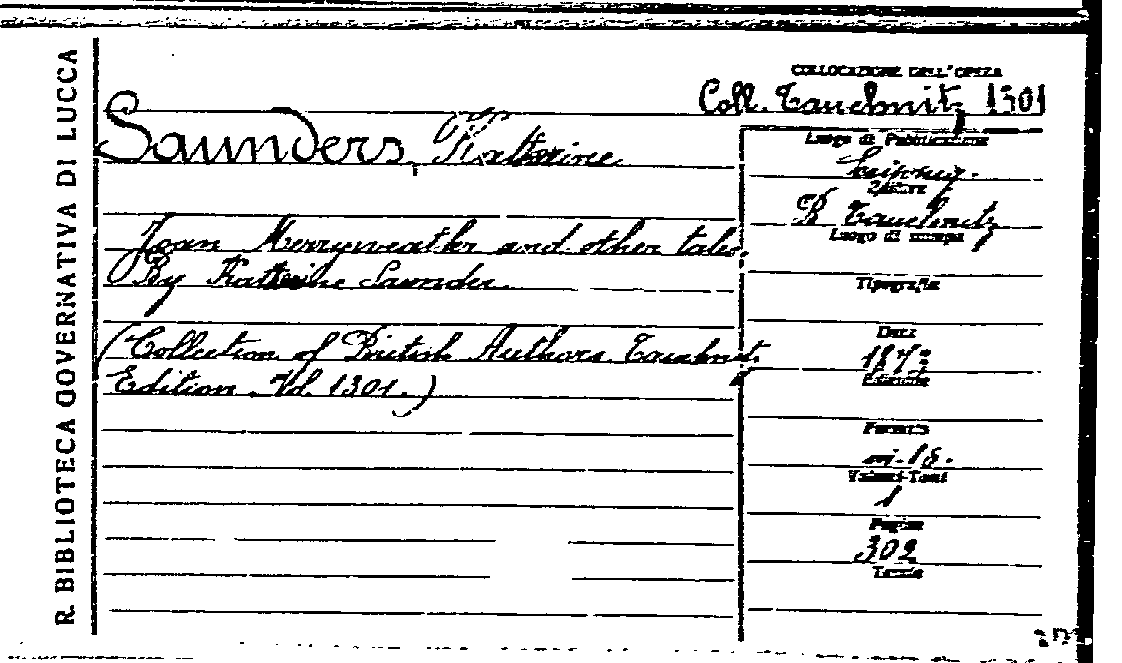 R. BIBLIOTECA GOVERNATIVA DI LUCCA
COLLOCAZIONE DELL'OPERA
Coll. Tauchnitz 1301
Saunders, Katherine
Joan Merryweather and other tales.
By Katherine Saunders.
(Collection of British Authors. Tauchnitz
Edition Vol. 1301.)
Luogo di Pubblicazione
Leipzig.
Editore
B Tauchnitz
Luogo di stampa
Tipografia
Data
187
Edizione
Formato
in-16.
Volumi-Tomi
1
Pagine
302
Tavole